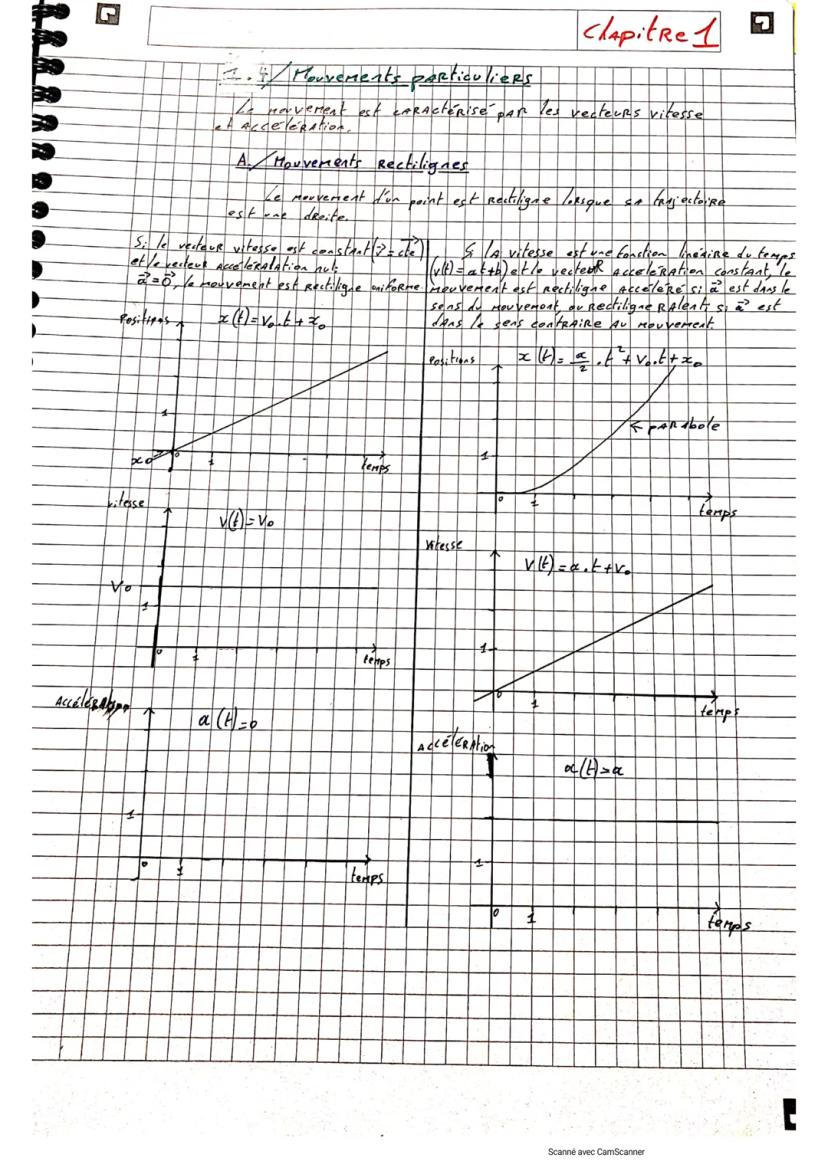 Chapitre 1
1.4/ Mouvements particuliers
Le mouvement est caractérisé par les vecteurs vitesse
et accélération.
A./ Mouvements Rectilignes
Le mouvement d'un point est rectiligne lorsque sa trajectoire
est une droite.
Si le vecteur vitesse est constant (v⃗ = cte⃗)
et le vecteur accéléralation nul:
a⃗ = 0⃗, le mouvement est rectiligne uniforme
Positions
x(t) = V₀.t + x₀
1
x₀
0
1
temps
vitesse
V(t) = V₀
V₀
1
0
1
temps
Accélération
a(t) = 0
1
0
1
temps
Si la vitesse est une fonction linéaire du temps
(v(t) = at+b) et le vecteur accélération constant, le
mouvement est rectiligne accéléré si a⃗ est dans le
sens du mouvement, ou rectiligne ralenti si a⃗ est
dans le sens contraire au mouvement
Positions
x(t) = a/2 . t² + V₀.t + x₀
← parabole
1
0
1
temps
Vitesse
V(t) = a.t + V₀
1
0
1
temps
Accélération
a(t) = a
1
0
1
temps
Scanné avec CamScanner